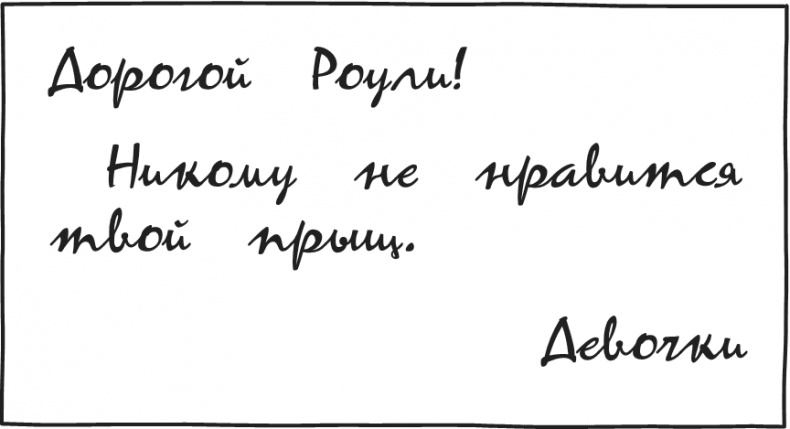 Дорогой Роули!
Никому не нравится
твой прыщ.
Девочки